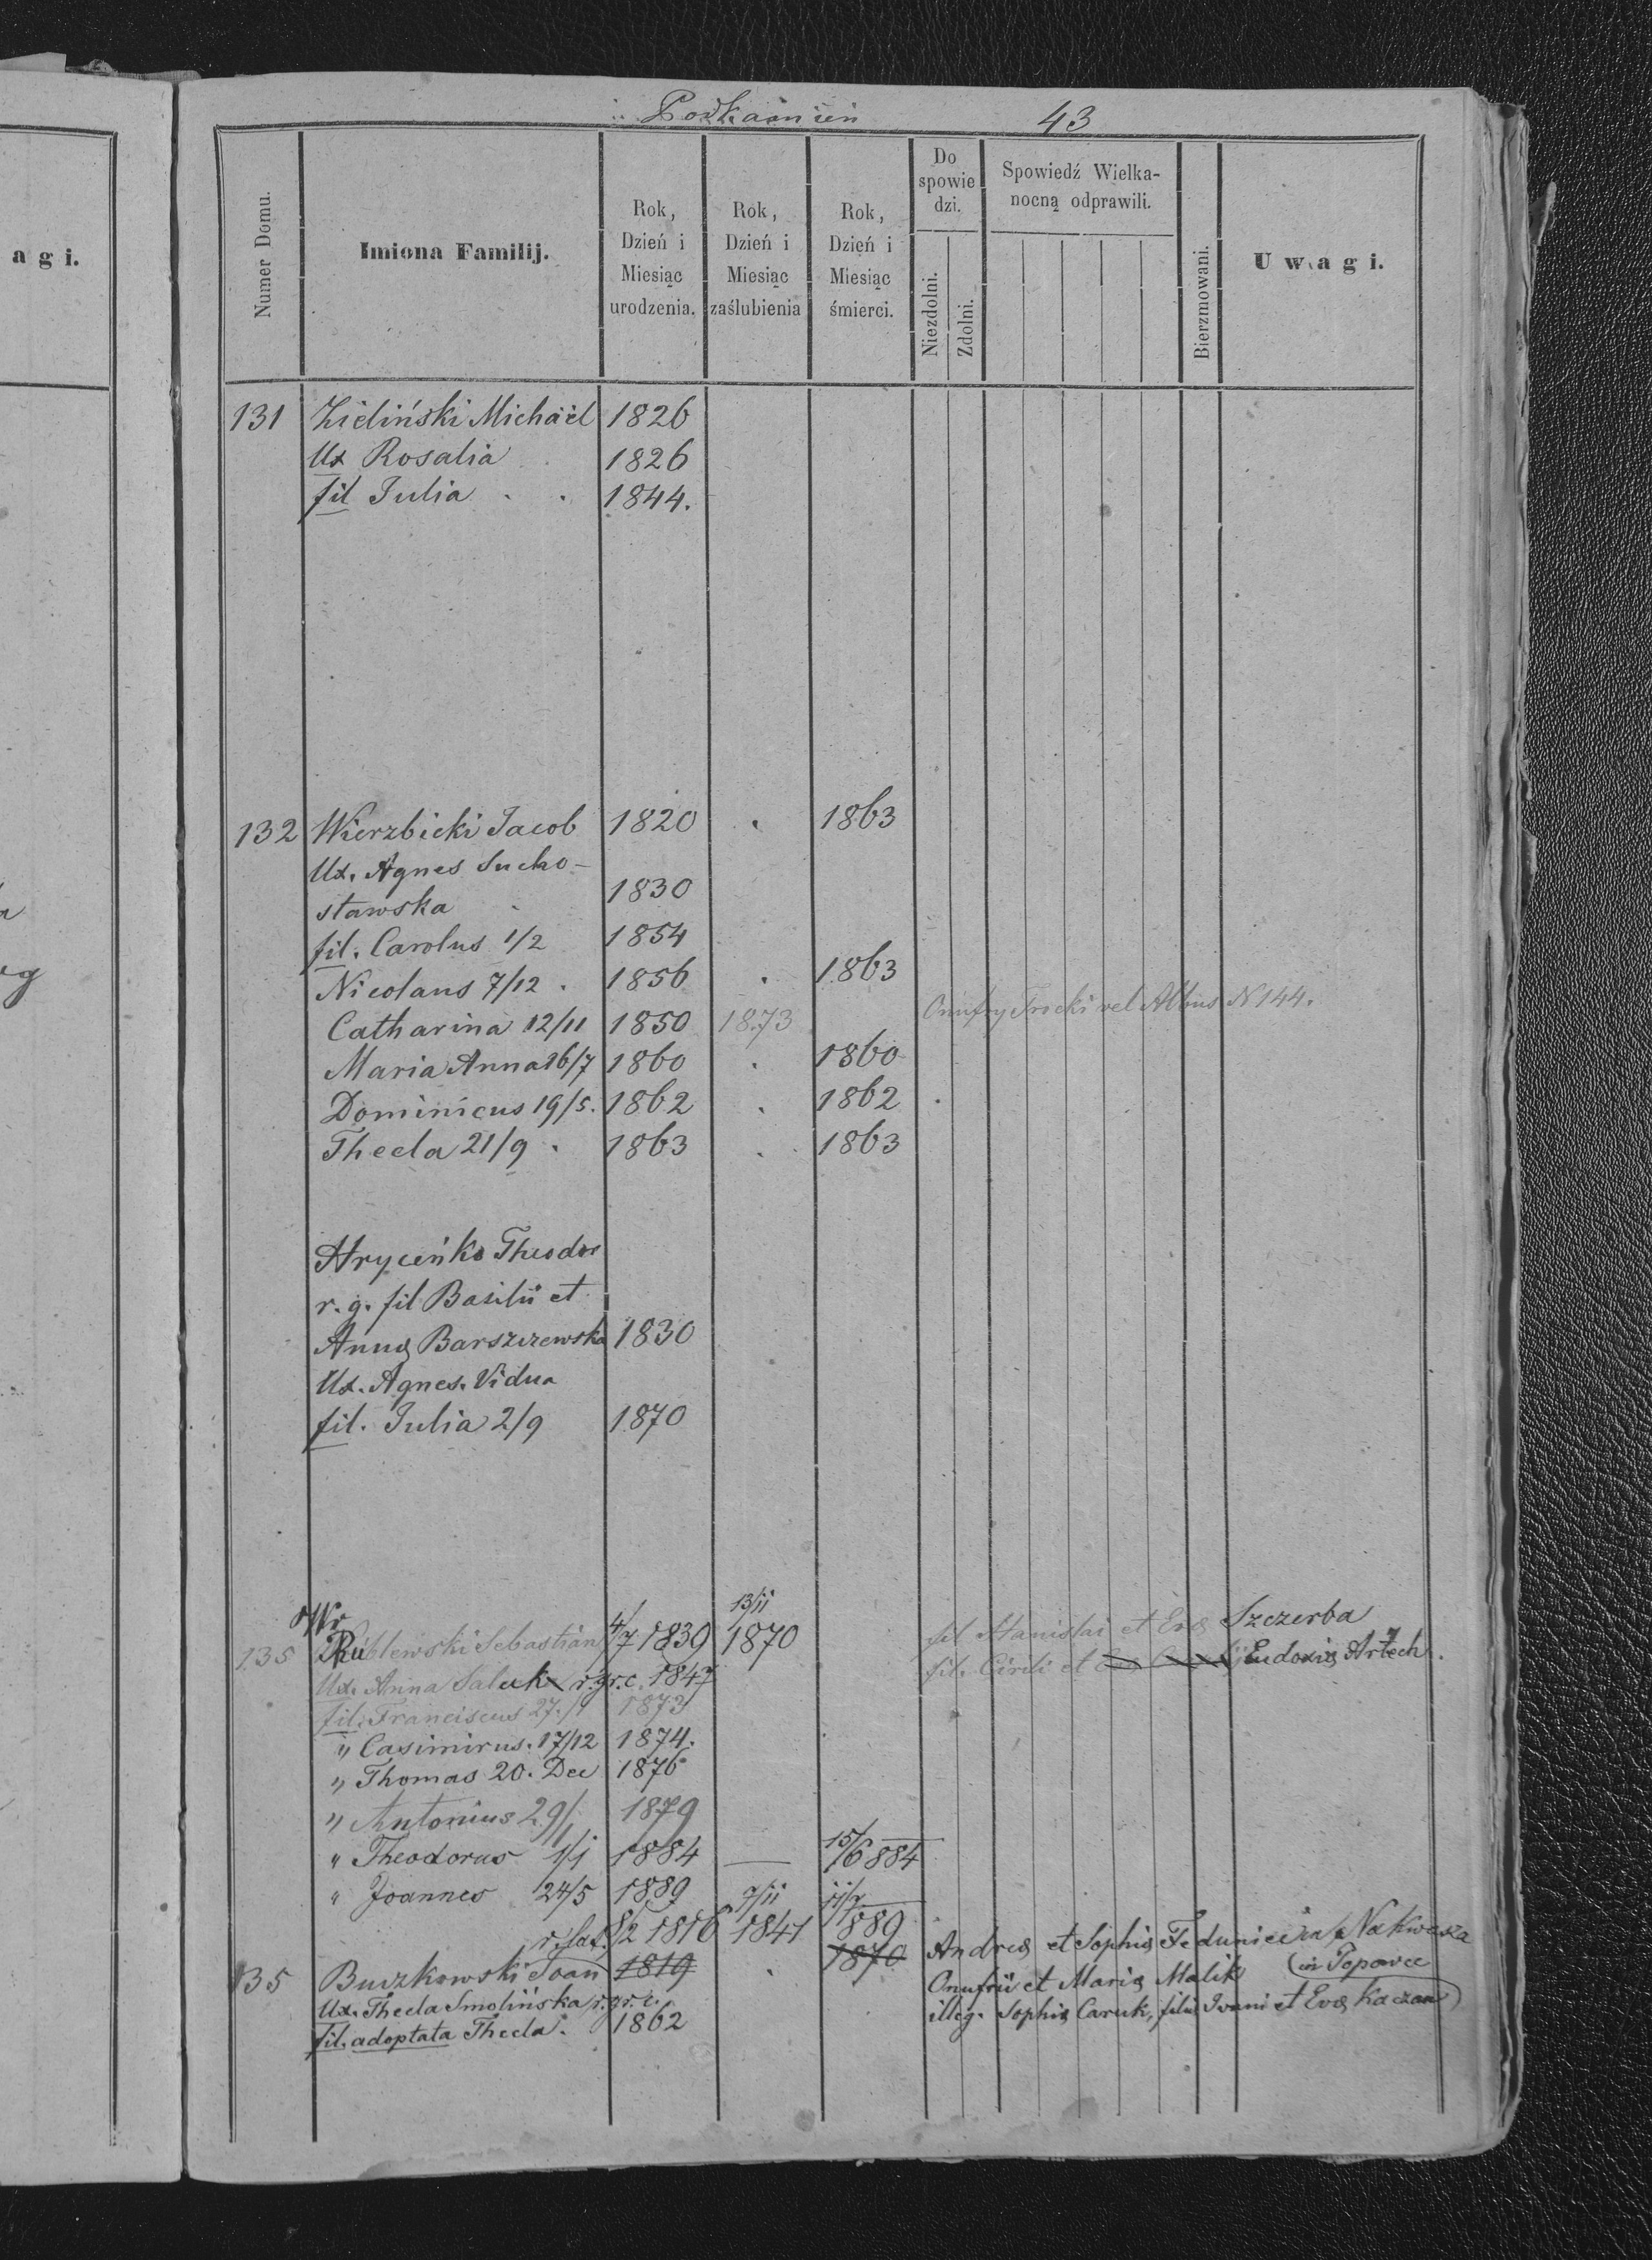 Podkamień 43
a g i.
Numer Domu.
Imiona Familij.
Rok, Dzień i Miesiąc urodzenia.
Rok, Dzień i Miesiąc zaślubienia
Rok, Dzień i Miesiąc śmierci.
Do spowie dzi.
Niezdolni.
Zdolni.
Spowiedź Wielka-
nocną odprawili.
Bierzmowani.
U w a g i.
131 Zieliński Michaël 1826
Ux Rosalia 1826
fil Julia . . 1844.
132 Wierzbicki Jacob 1820 . 1863
Ux. Agnes Sucho-
stawska 1830
fil. Carolus 1/2 1854
Nicolaus 7/12 . 1856 . 1863
Catharina 12/11 1850 1873 Onufry Trocki vel Albus N 144.
Maria Anna 26/7 1860 . 1860
Dominicus 19/5. 1862 . 1862
Thecla 21/9 . 1863 . 1863
Hryceńko Theodor
r. g. fil Basilii et
Annę Barszczewska 1830
Ux. Agnes. Vidua
fil. Julia 2/9 1870
135 Sebastian 4/7 1839 13/11 1870 fil Stanislai et Evę Szczerba
Ux. Anna Saluk r. gr. c. 1847 fil. Cirili et Eudoxię Artech.
fil. Franciscus 27/ 1873
" Casimirus. 17/12 1874.
" Thomas 20. Dec 1876
" Antonius 29/ 1879
" Theodorus 1/1 1884 — 15/6 884
" Joannes 24/5 1889
r. lat. 8/2 1816 7/11 1841 11/7 889 Andreę et Sophię in Nakwasza
135 Buczkowski Joan 1819 . 1870 Onufrii et Marię Malik (in Popowce
Ux. Thecla Smolińska r. gr. c.
fil. adoptata Thecla. 1862 illeg. Sophię Caruk, filię Ivani et Evę Kaczan